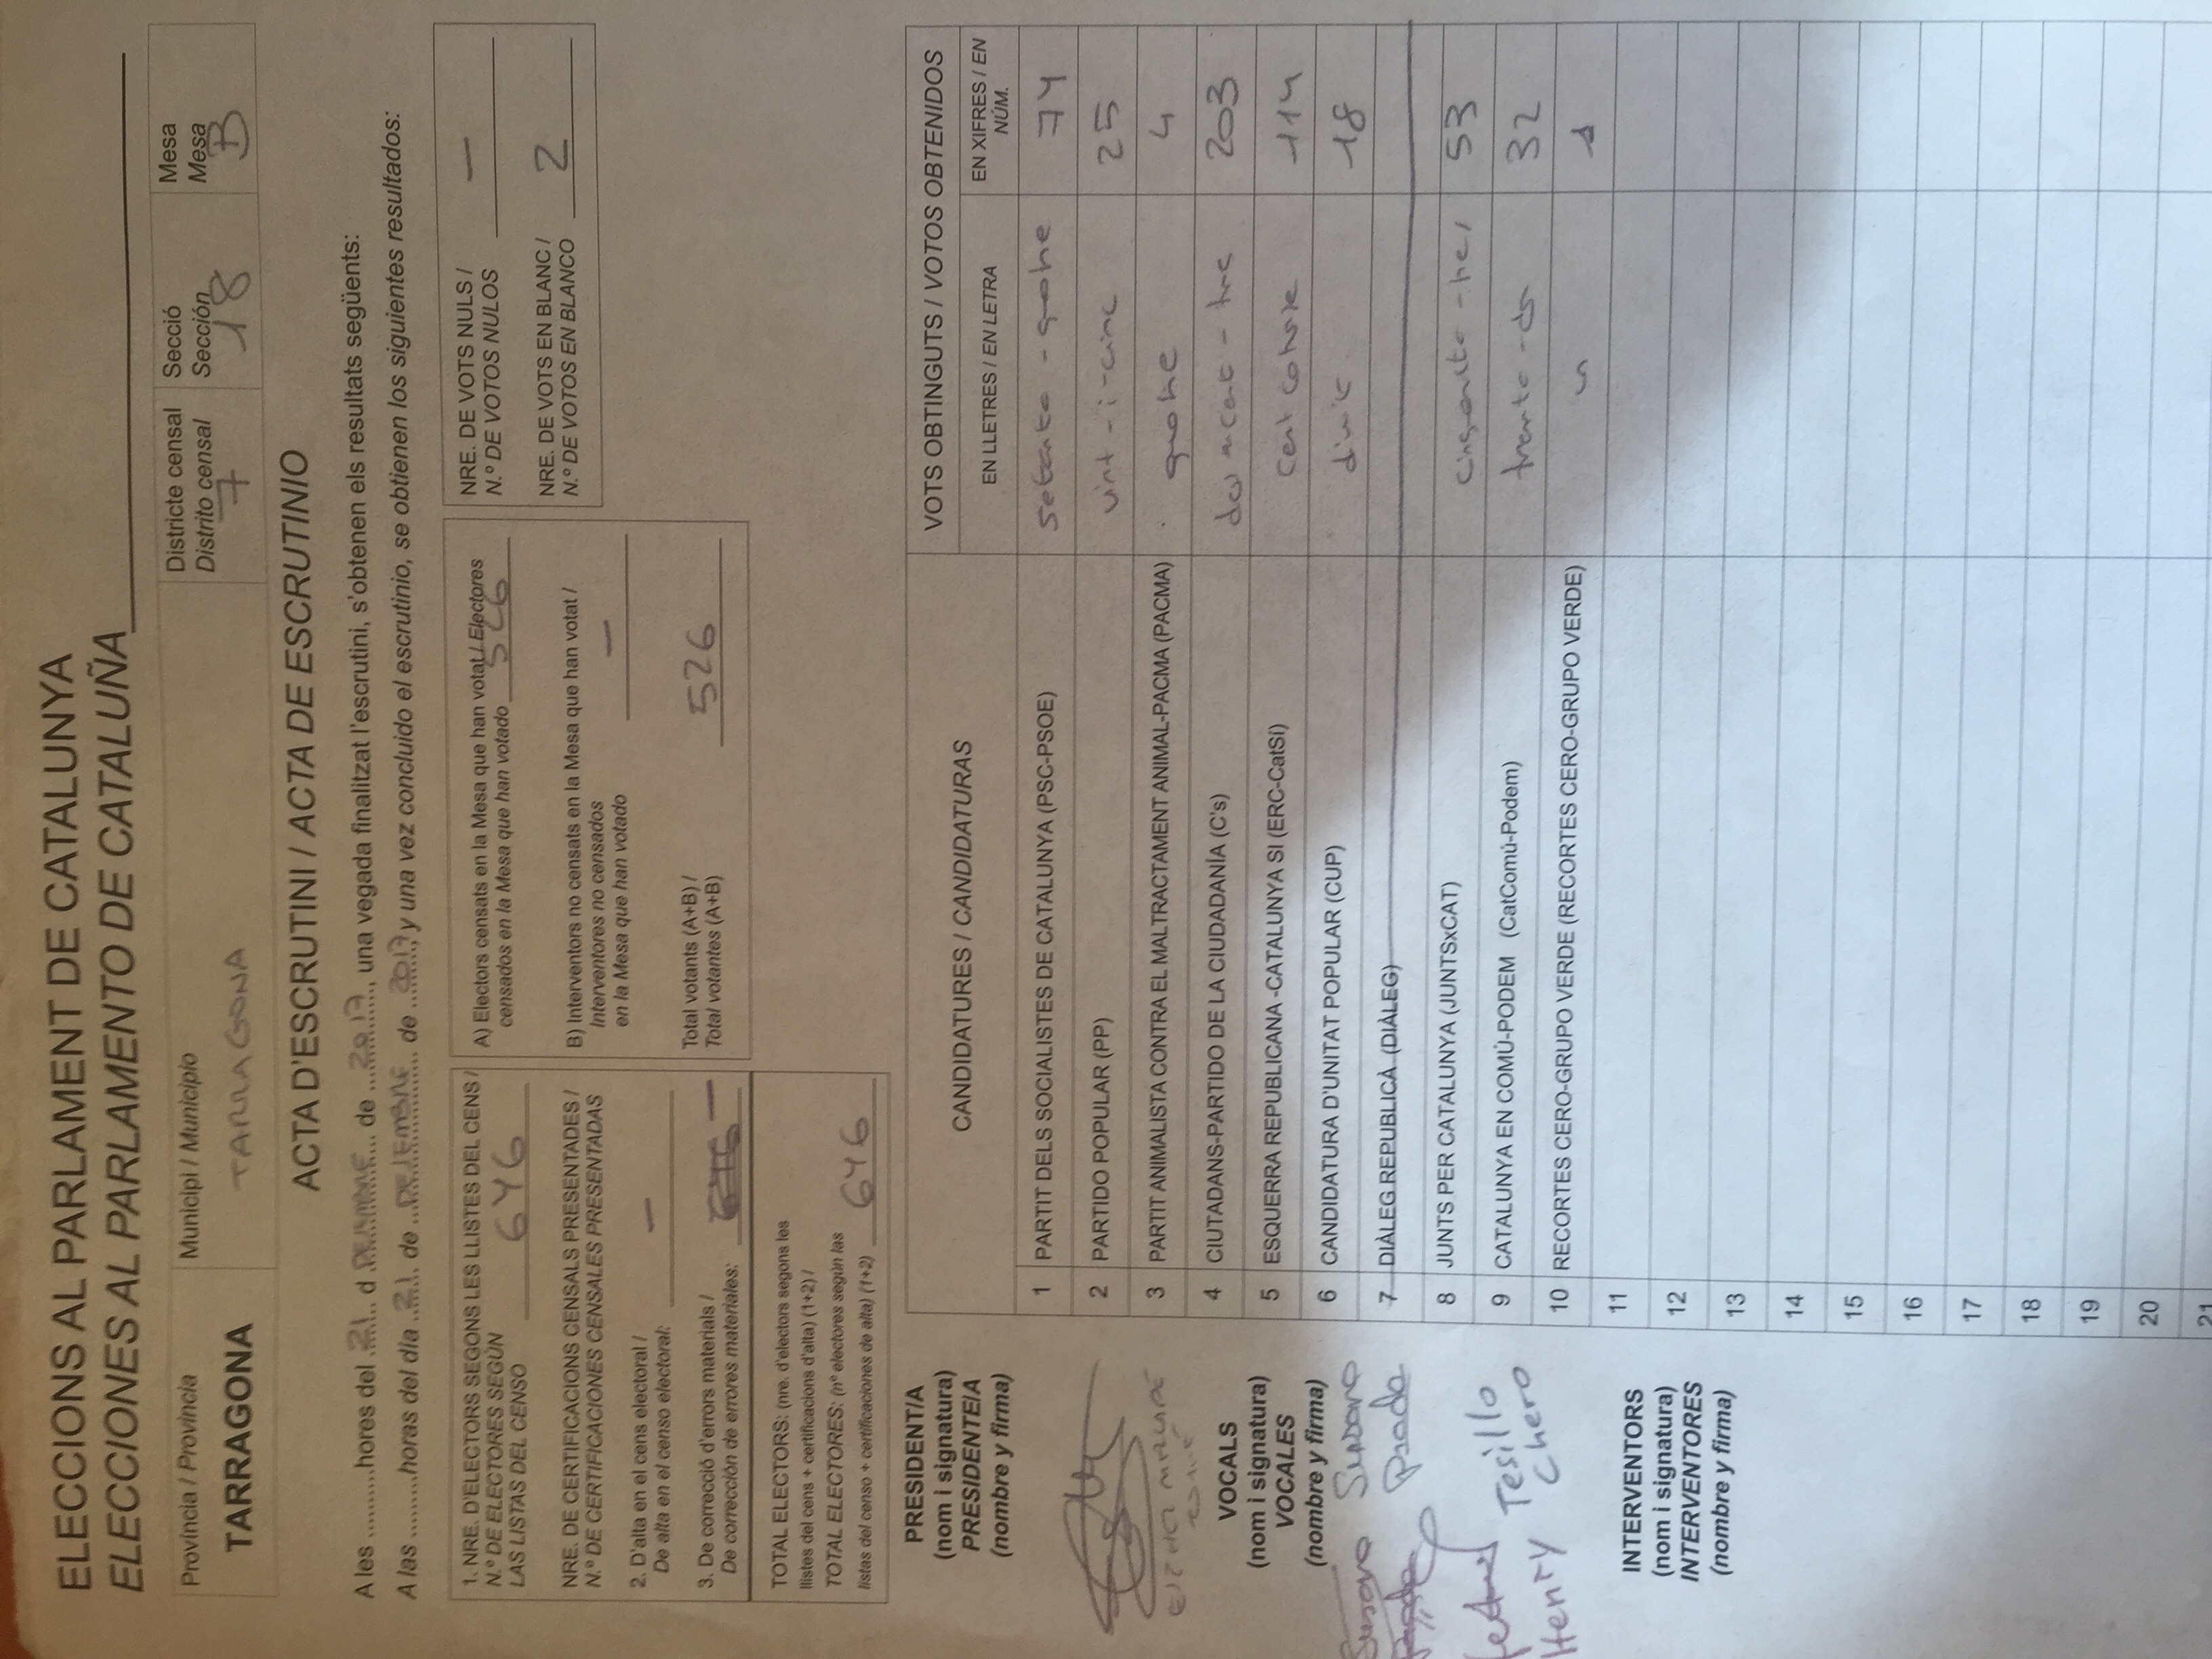 ELECCIONS AL PARLAMENT DE CATALUNYA
ELECCIONES AL PARLAMENTO DE CATALUÑA
Província / Provincia
TARRAGONA
Municipi / Municipio
TARRAGONA
Districte censal
Distrito censal
7
Secció
Sección
18
Mesa
Mesa
B
ACTA D'ESCRUTINI / ACTA DE ESCRUTINIO
A les ..........hores del 21 d DESEMBRE de 2017, una vegada finalitzat l'escrutini, s'obtenen els resultats següents:
A las .........horas del día 21 de de 2017, y una vez concluido el escrutinio, se obtienen los siguientes resultados:
1. NRE. D'ELECTORS SEGONS LES LLISTES DEL CENS /
N.º DE ELECTORES SEGÚN
LAS LISTAS DEL CENSO 646
NRE. DE CERTIFICACIONS CENSALS PRESENTADES /
N.º DE CERTIFICACIONES CENSALES PRESENTADAS
2. D'alta en el cens electoral /
De alta en el censo electoral: —
3. De correcció d'errors materials /
De corrección de errores materiales: 646 —
TOTAL ELECTORS: (nre. d'electors segons les
llistes del cens + certificacions d'alta) (1+2) /
TOTAL ELECTORES: (nº electores según las
listas del censo + certificaciones de alta) (1+2) 646
A) Electors censats en la Mesa que han votat / Electores
censados en la Mesa que han votado 526
B) Interventors no censats en la Mesa que han votat /
Interventores no censados
en la Mesa que han votado —
Total votants (A+B) /
Total votantes (A+B) 526
NRE. DE VOTS NULS /
N.º DE VOTOS NULOS —
NRE. DE VOTS EN BLANC /
N.º DE VOTOS EN BLANCO 2
PRESIDENT/A
(nom i signatura)
PRESIDENTE/A
(nombre y firma)
VOCALS
(nom i signatura)
VOCALES
(nombre y firma)
Susana Susana
Prada Prada
Tesillo
Henry Chero
INTERVENTORS
(nom i signatura)
INTERVENTORES
(nombre y firma)
CANDIDATURES / CANDIDATURAS
VOTS OBTINGUTS / VOTOS OBTENIDOS
EN LLETRES / EN LETRA
EN XIFRES / EN
NÚM.
1 PARTIT DELS SOCIALISTES DE CATALUNYA (PSC-PSOE) setanta - quatre 74
2 PARTIDO POPULAR (PP) vint-i-cinc 25
3 PARTIT ANIMALISTA CONTRA EL MALTRACTAMENT ANIMAL-PACMA (PACMA) quatre 4
4 CIUTADANS-PARTIDO DE LA CIUDADANÍA (C's) 203
5 ESQUERRA REPUBLICANA -CATALUNYA SI (ERC-CatSí) cent catorze 114
6 CANDIDATURA D'UNITAT POPULAR (CUP) 18
7 DIÀLEG REPUBLICÀ (DIÀLEG)
8 JUNTS PER CATALUNYA (JUNTSxCAT) cinquanta-tres 53
9 CATALUNYA EN COMÚ-PODEM (CatComú-Podem) trenta-dos 32
10 RECORTES CERO-GRUPO VERDE (RECORTES CERO-GRUPO VERDE) un 1
11
12
13
14
15
16
17
18
19
20
21